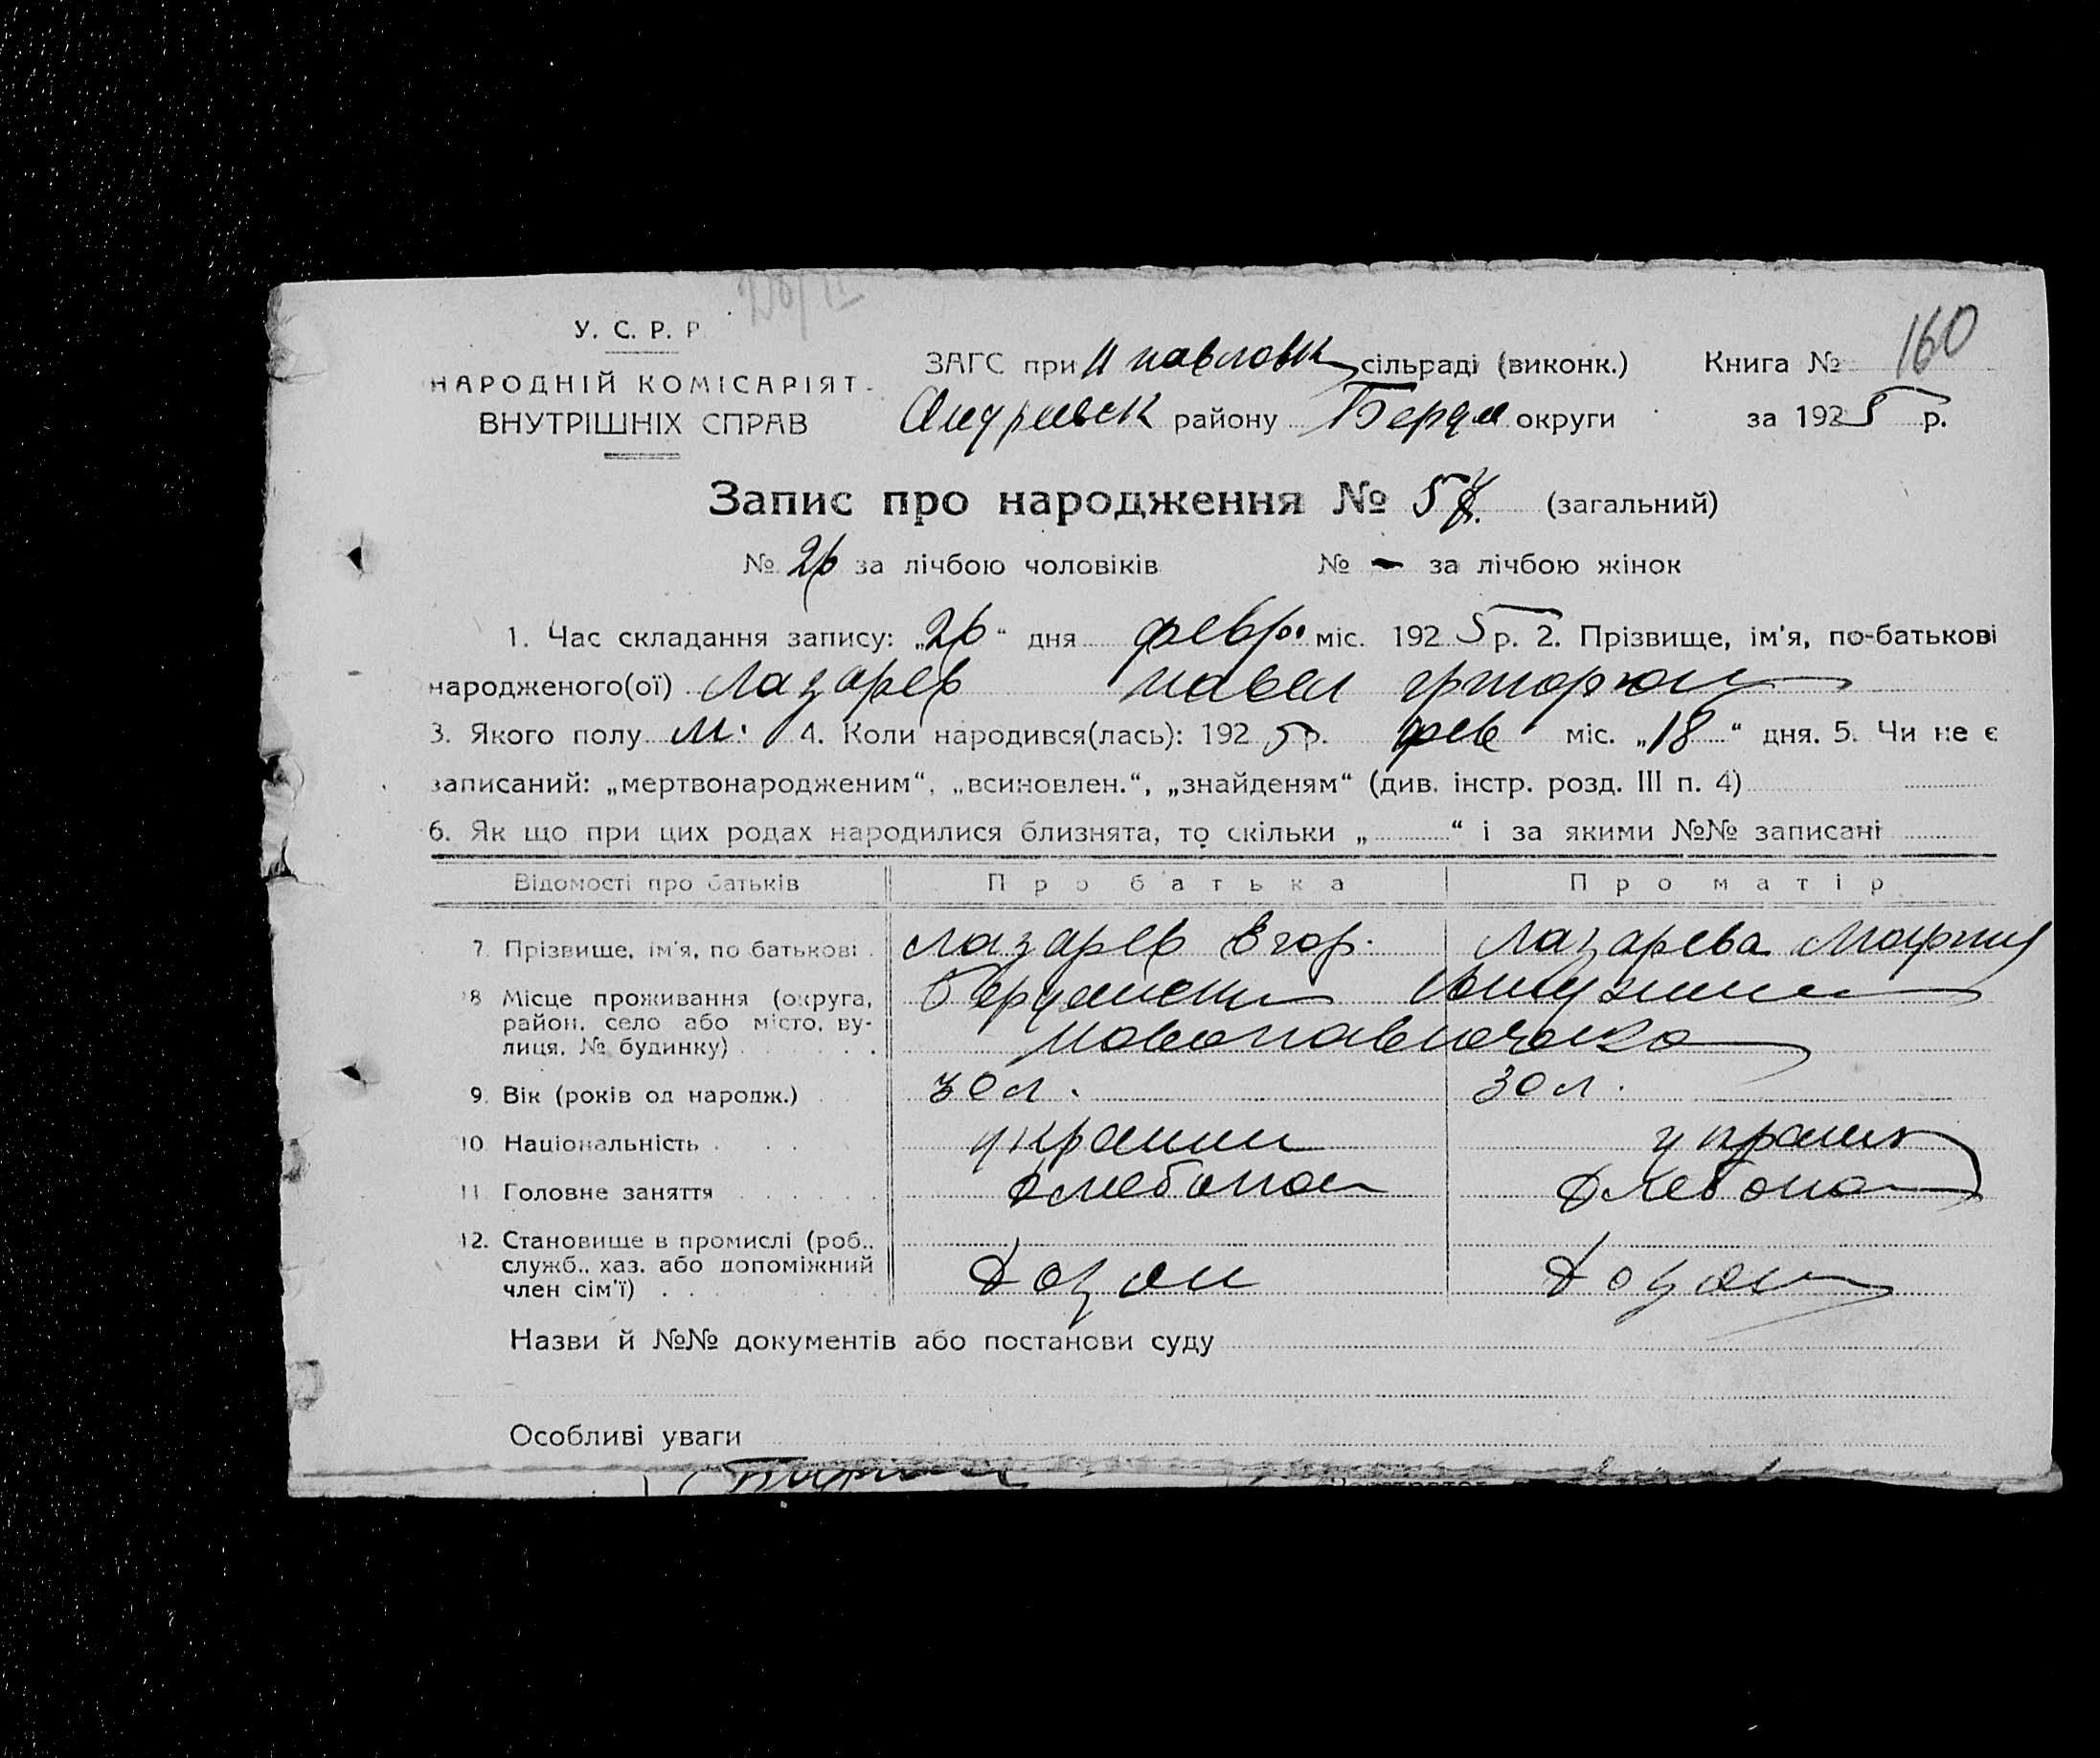 У. С. Р. Р.
НАРОДНІЙ КОМІСАРІЯТ
ВНУТРІШНІХ СПРАВ
ЗАГС при Н павловк сільраді (виконк.) Книга № 160
Андріевск района Бердя округи за 1925 р.
Запис про народження № 5 (загальний)
№ 26 за лічбою чоловіків № - за лічбою жінок
1. Час складання запису: „26“ дня февр. міс. 1925 р. 2. Прізвище, ім'я, по-батькові
народженого(ої) Лазарев Павел
3. Якого полу м. 4. Коли народився(лась): 1925 р. фев міс. „18“ дня. 5. Чи не є
записаний: „мертвонародженим“, „всиновлен.“, „знайденям“ (див. інстр. розд. III п. 4)
6. Як що при цих родах народилися близнята, то скільки „ “ і за якими №№ записані
Відомості про батьків Про батька Про матір
7. Прізвище, ім'я, по батькові Лазарев Егор. Лазарева Мария
8 Місце проживання (округа,
район, село або місто, ву-
лиця, № будинку)
9. Вік (років од народж.) 30 л. 30 л.
10 Національність украин украин
11 Головне заняття хлебопаш хлебопа
12. Становище в промислі (роб.,
служб., хаз. або допоміжний
член сім'ї) хозяи хозяи
Назви й №№ документів або постанови суду
Особливі уваги